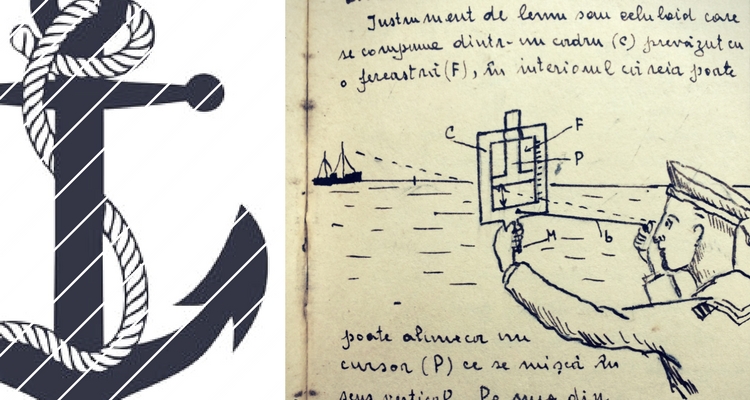 Instrument de lemn sau celuloid care
se compune dintr-un cadru (C) prevăzut cu
o fereastră (F), în interiorul căreia poate
C
F
P
M
b
poate aluneca un
cursor (P) ce se mișcă în
sens vertical. Pe una din